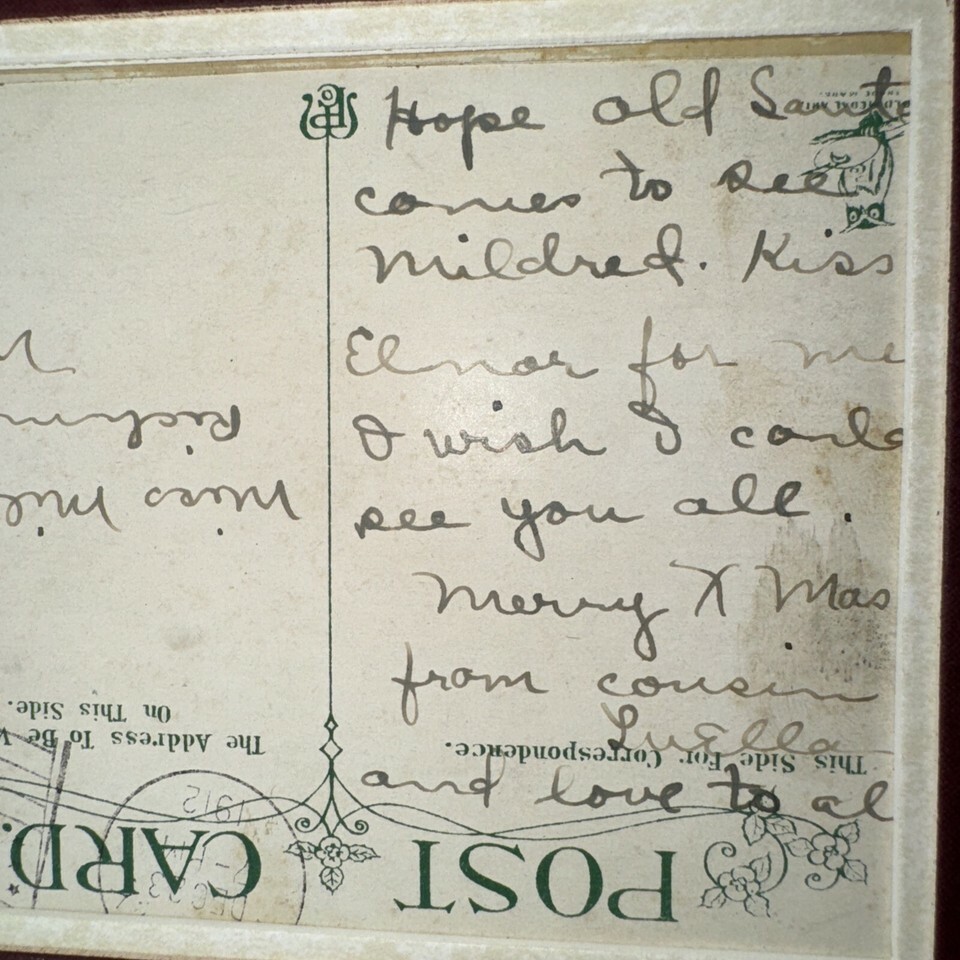 Hope old Santa
comes to see
Mildred. Kiss
Elnor for me
I wish I could
see you all.
Merry X Mas
from cousin
Luella
and love to al
POST CARD.
This Side For Correspondence.
The Address To Be
On This Side.
Miss Mil
Richm
1912
DEC 23
TRADE MARK.